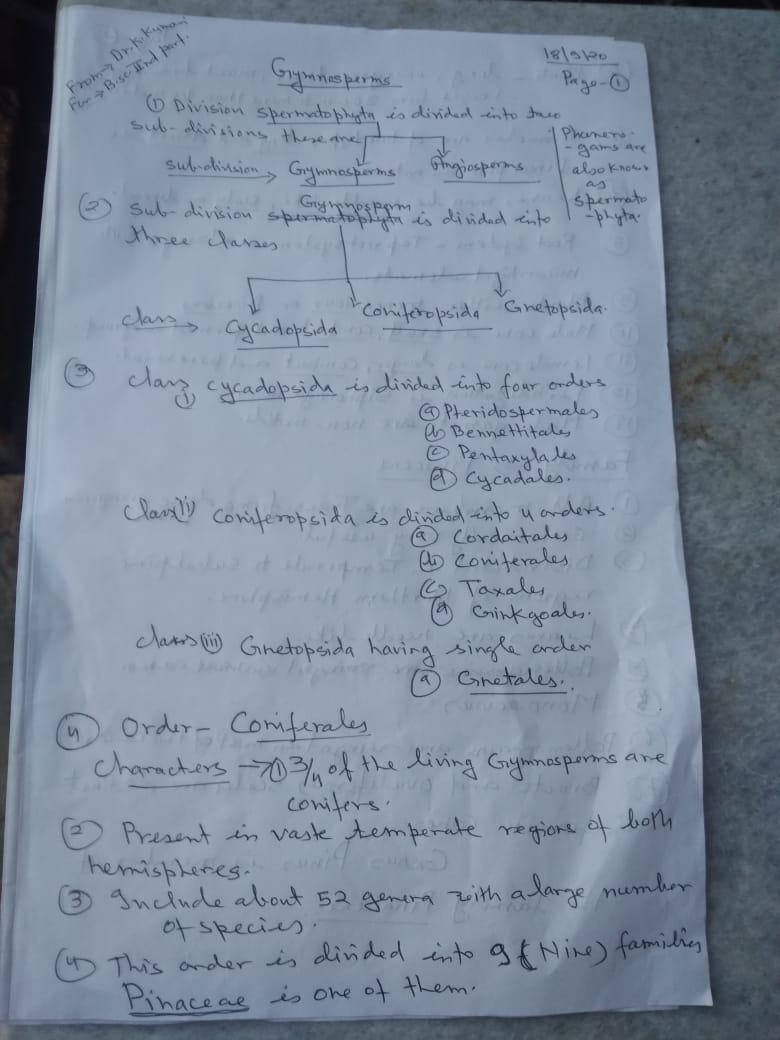 From → Dr. K. Kumari
For → B.sc IInd part.
18/9/20
Page-①
Gymnosperms
① Division spermatophyta is divided into two
sub-divisions these are
Phanero-
-gams are
also known
as
spermato
-phyta.
subdivision → Gymnosperms Angiosperms
② Sub-division spermatophyta Gymnosperm is divided into
three classes
class → Cycadopsida Coniferopsida Gnetopsida.
③ class (i) cycadopsida is divided into four orders
(a) Pteridospermales
(b) Bennettitales
(c) Pentaxylales
(d) Cycadales.
Class (ii) coniferopsida is divided into 4 orders.
(a) Cordaitales
(b) Coniferales
(c) Taxales
(d) Ginkgoales.
class (iii) Gnetopsida having single order
(a) Gnetales.
④ Order- Coniferales
Characters → ① 3/4 of the living Gymnosperms are
conifers.
② Present in vast temperate regions of both
hemispheres.
③ Include about 52 genera with a large number
of species.
④ This order is divided into 9 (Nine) families
Pinaceae is one of them.